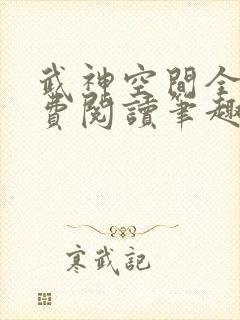 武神空間全
費閱讀筆趣
寒武記